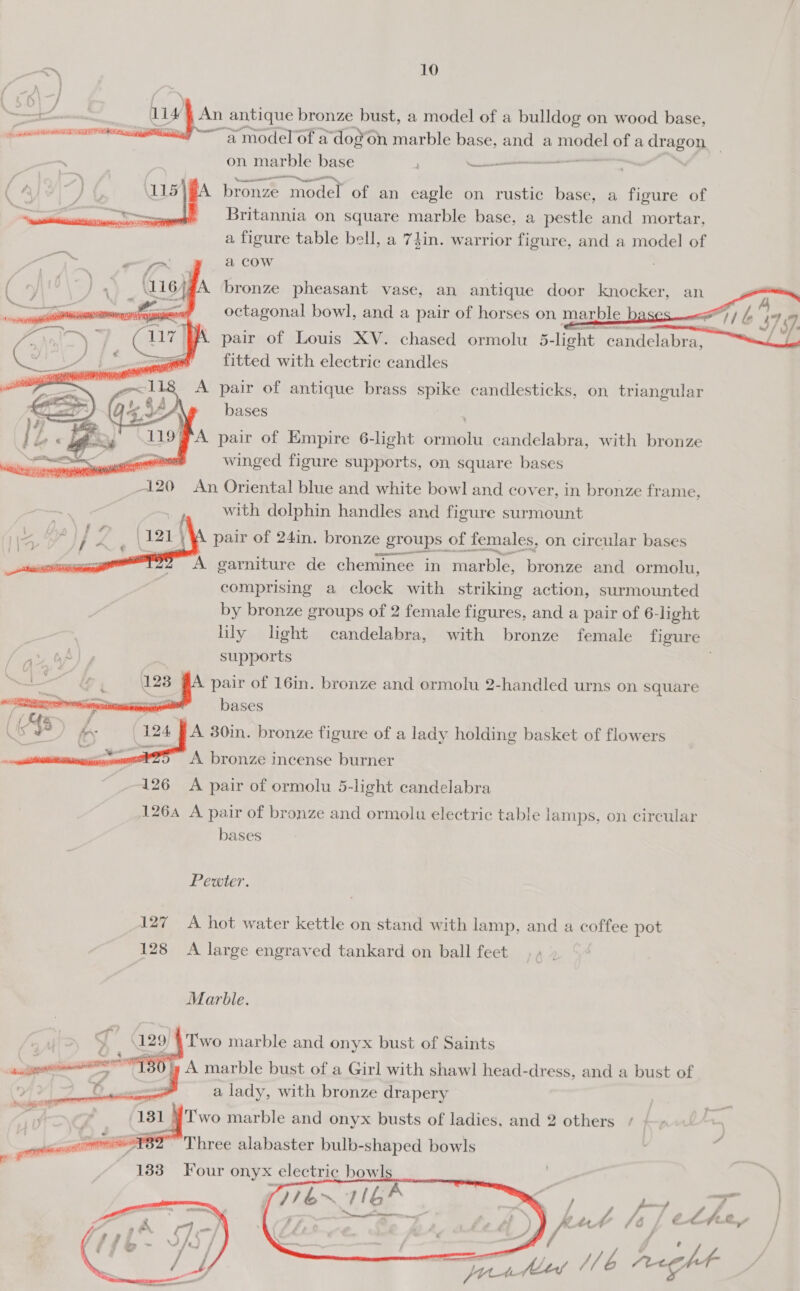 10
114 An antique bronze bust, a model of a bulldog on wood base,
a model of a dog on marble base, and a model of a dragon
on marble base
115 A bronze model of an eagle on rustic base, a figure of
Britannia on square marble base, a pestle and mortar,
a figure table bell, a 7½in. warrior figure, and a model of
a cow
116 A bronze pheasant vase, an antique door knocker, an
octagonal bowl, and a pair of horses on marble bases
117 A pair of Louis XV. chased ormolu 5-light candelabra,
fitted with electric candles
118 A pair of antique brass spike candlesticks, on triangular
bases
119 A pair of Empire 6-light ormolu candelabra, with bronze
winged figure supports, on square bases
120 An Oriental blue and white bowl and cover, in bronze frame,
with dolphin handles and figure surmount
121 A pair of 24in. bronze groups of females, on circular bases
122 A garniture de cheminee in marble, bronze and ormolu,
comprising a clock with striking action, surmounted
by bronze groups of 2 female figures, and a pair of 6-light
lily light candelabra, with bronze female figure
supports
123 A pair of 16in. bronze and ormolu 2-handled urns on square
bases
124 A 30in. bronze figure of a lady holding basket of flowers
125 A bronze incense burner
126 A pair of ormolu 5-light candelabra
126A A pair of bronze and ormolu electric table lamps, on circular
bases
Pewter.
127 A hot water kettle on stand with lamp, and a coffee pot
128 A large engraved tankard on ball feet
Marble.
129 Two marble and onyx bust of Saints
130 A marble bust of a Girl with shawl head-dress, and a bust of
a lady, with bronze drapery
131 Two marble and onyx busts of ladies, and 2 others
132 Three alabaster bulb-shaped bowls
133 Four onyx electric bowls
116 116A
116 right